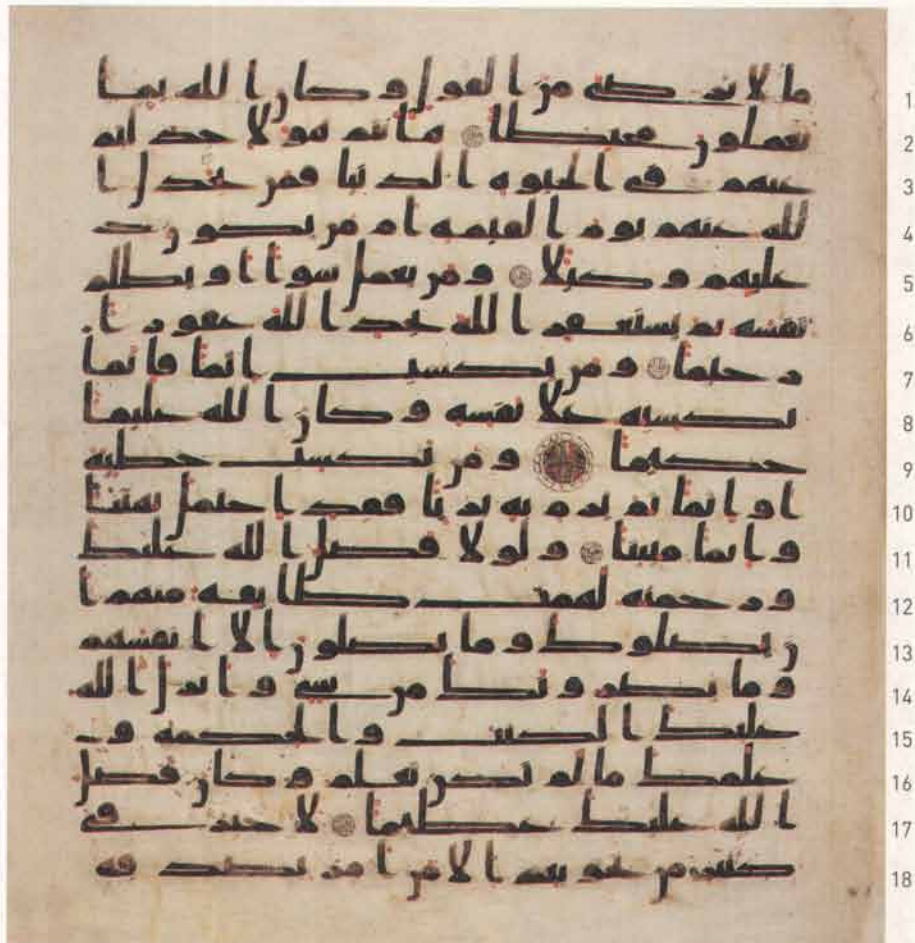 ما لا يرضى من القول وكان الله بما 1
يعملون محيطا هانتم هولا جدلتم 2
عنهم في الحيوة الدنيا فمن يجدل ا 3
لله عنهم يوم القيمة ام من يكون 4
عليهم وكيلا ومن يعمل سوا او يظلم 5
نفسه ثم يستغفر الله يجد الله غفورا 6
رحيما ومن يكسب اثما فانما 7
يكسبه على نفسه وكان الله عليما 8
حكيما ومن يكسب خطية 9
او اثما ثم يرم به بريا فقد احتمل بهتنا 10
واثما مبينا ولولا فضل الله عليك 11
ورحمته لهمت طايفة منهم ا 12
ن يضلوك وما يضلون الا انفسهم 13
وما يضرونك من شي وانزل الله 14
عليك الكتب والحكمة و 15
علمك ما لم تكن تعلم وكان فضل 16
الله عليك عظيما لا خير في 17
كثير من نجويهم الا من امر بصدقة 18